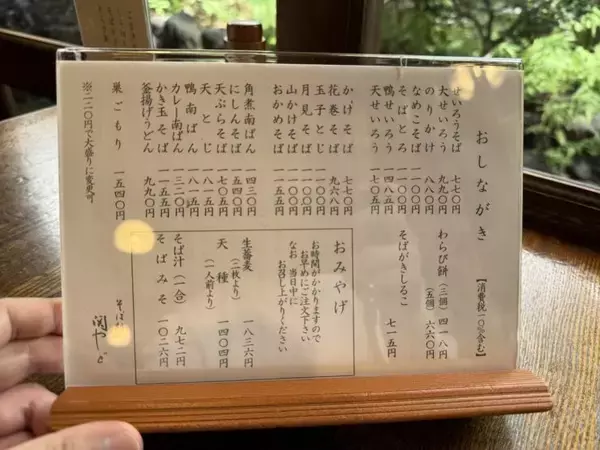 おしながき 【消費税一〇%含む】
せいろうそば 七七〇円
大せいろう 九九〇円
のりかけ 八八〇円
なめこそば 一一〇〇円
そばとろ 一一〇〇円
鴨せいろう 一四八五円
天せいろう 一七〇五円
わらび餅(三個) 四一八円
(五個) 六六〇円
そばがきしるこ 七一五円
かけそば 七七〇円
花巻そば 九六八円
玉子とじ 一一〇〇円
月見そば 一一〇〇円
山かけそば 一一〇〇円
おかめそば 一一〇〇円
角煮南ばん 一四三〇円
にしんそば 一五四〇円
天ぷらそば 一七〇五円
天とじ 一八一五円
鴨南ばん
カレー南ばん 一三二〇円
かき玉そば 一一五五円
釜揚げうどん 九九〇円
巣ごもり 一五四〇円
※二二〇円で大盛りに変更可
おみやげ
お時間がかかりますので
お早めにご注文下さい
なお 当日中に
お召し上がりください
生蕎麦(二枚より) 一八三六円
天種(一人前より) 一四〇四円
そば汁(一合) 九七二円
そばみそ 一〇二六円